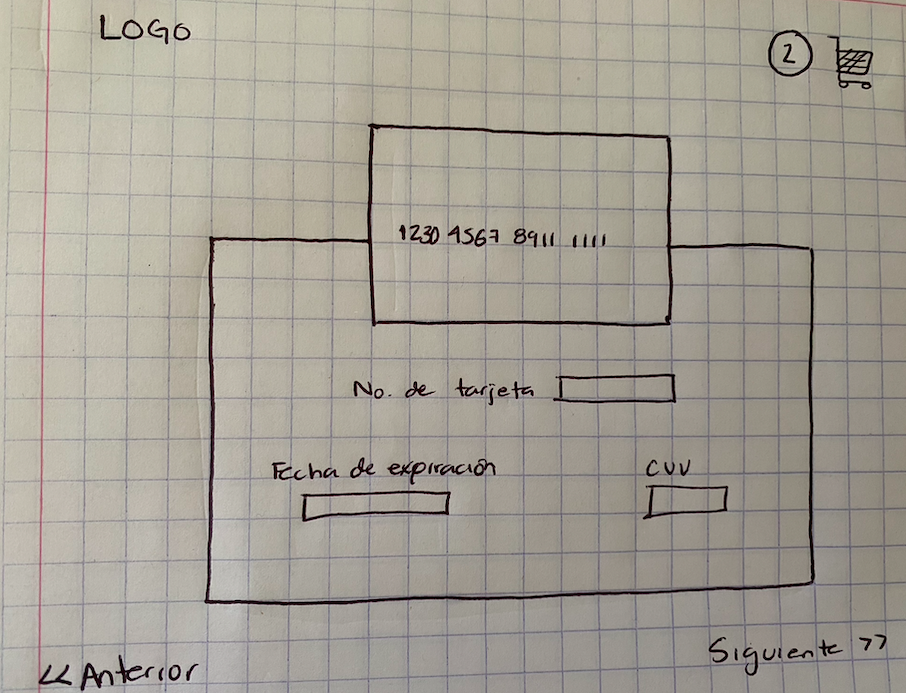 LOGO
2
1230 4567 8911 1111
No. de tarjeta
Fecha de expiración
CVV
<< Anterior
Siguiente >>